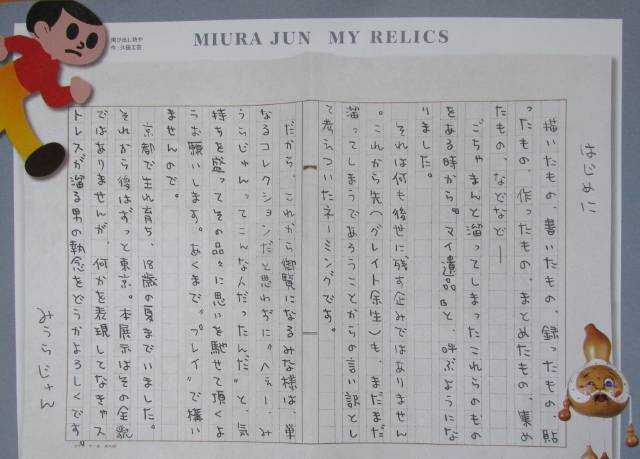 飛び出し坊や
作・久田工芸
MIURA JUN MY RELICS
はじめに
描いたもの、書いたもの、録ったもの、貼
ったもの、作ったもの、まとめたもの、集め
たもの、などなど──
ごちゃまんと溜ってしまったこれらのもの
をある時から〝マイ遺品〟と、呼ぶようにな
りました。
それは何も後世に残す企みではありません
。これから先（グレイト余生）も、まだまだ
溜ってしまうであろうことからの言い訳とし
て考えついたネーミングです。
だから、これから御覧になるみな様は、単
なるコレクションだと思わずに〝へぇー、み
うらじゅんってこんな人だったんだ〟と、気
持ちを盛ってその品々に思いを馳せて頂くよ
うお願いします。あくまで〝プレイ〟で構い
ませんので。
京都で生れ育ち、18歳の夏までいました。
それから後はずっと東京。本展示はその全貌
ではありませんが、何かを表現してなきゃス
トレスが溜る男の執念をどうかよろしくです
みうらじゅん